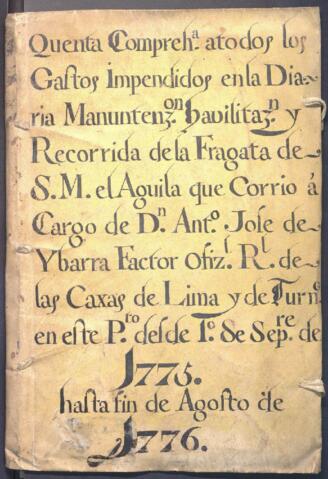 Quenta Compreh.ª a todos los
Gastos Impendidos en la Dia-
ria Manuntenz.on havilitaz.n y
Recorrida de la Fragata de
S.M. el Aguila que Corrio á
Cargo de D.n Ant.o Jose de
Ybarra Factor Ofiz.l R.l de
las Caxas de Lima y de Turn.o
en este P.to desde 1.o de Sep.re de
1775.
hasta fin de Agosto de
1776.